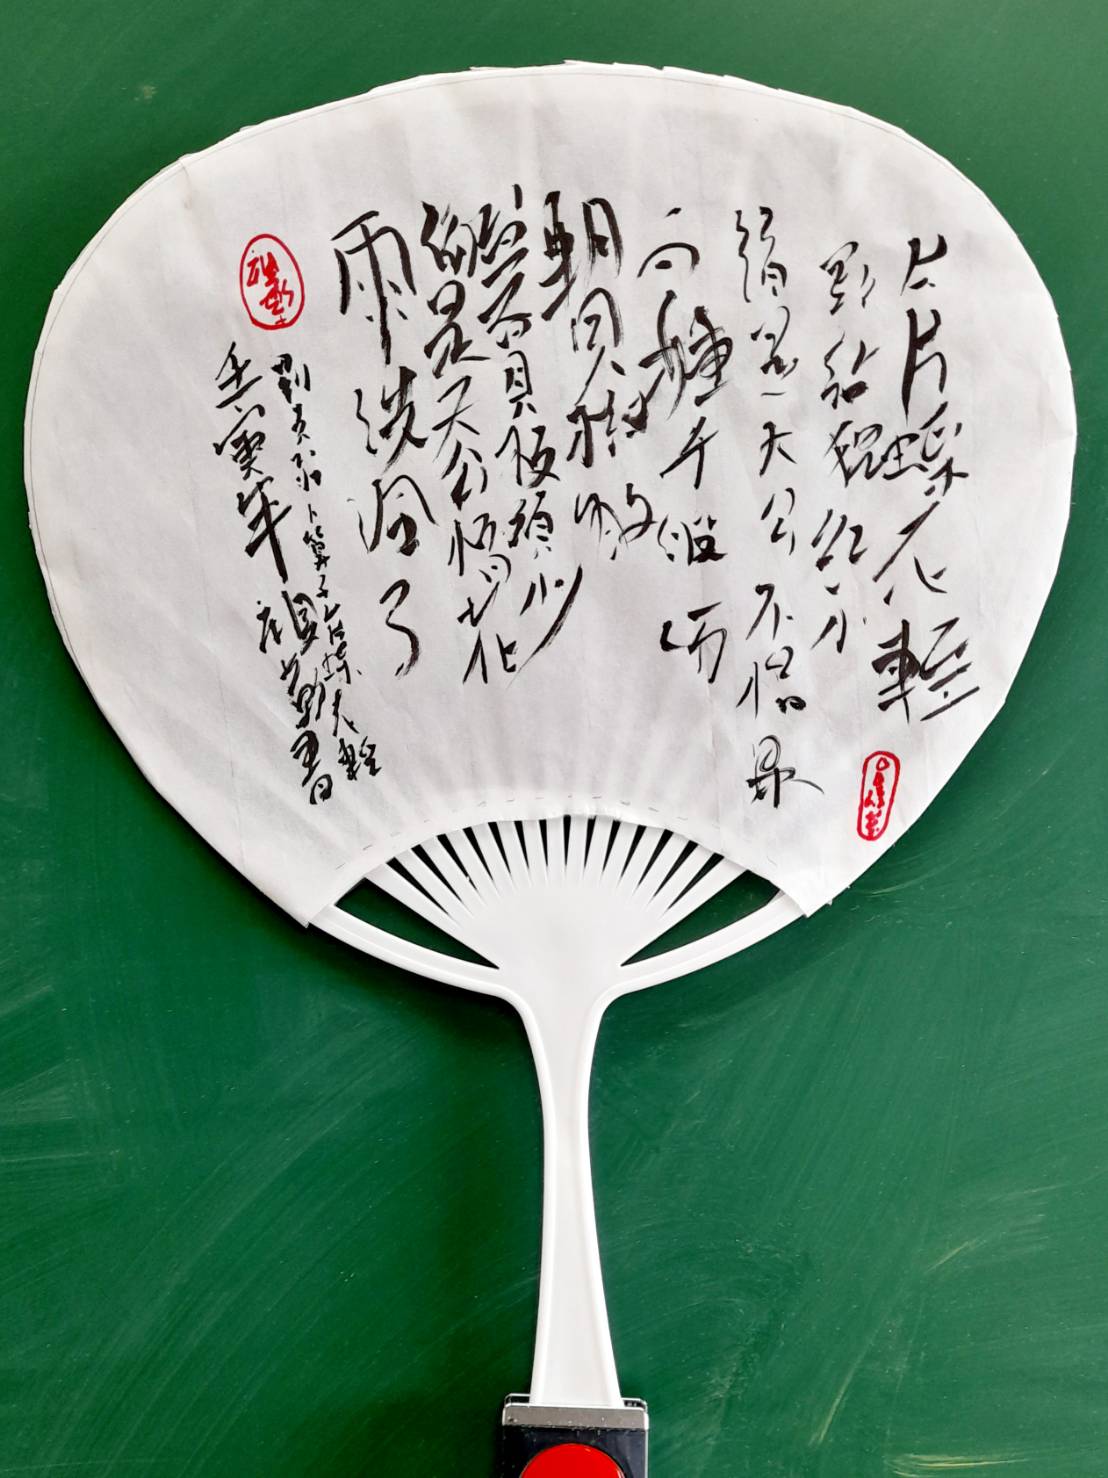 片片蝶衣輕
點點猩紅小
道是天公不惜花
百種千般巧
朝見樹繁
暮見枝頭少
是天公惜花
雨洗風了
劉克莊卜算子片片蝶衣輕
壬寅年 書